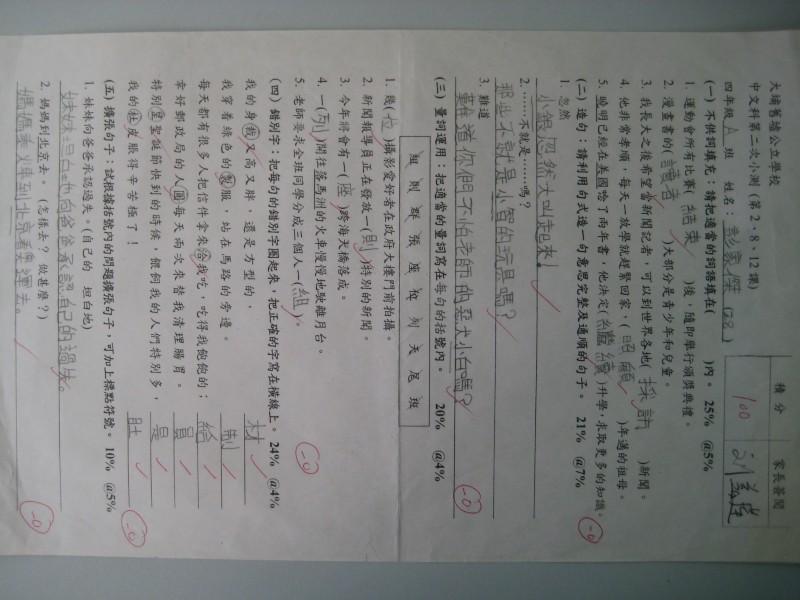 大埔舊墟公立學校
中文科第二次小測(第2、8、12課)
四年級A班 姓名:彭家傑(28)
積分 家長簽閱
100
(一) 不供詞填充:請把適當的詞語填在( )內。 25% @5%
1. 運動會所有比賽(結束)後,隨即舉行頒獎典禮。
2. 漫畫書的(讀者)大部分是青少年和兒童。
3. 我長大之後希望當新聞記者,可以到世界各地(採訪)新聞。
4. 他非常孝順,每天一放學就趕緊回家,(照顧)年邁的祖母。
5. 曉明已經在美國唸了兩年書,他決定(繼續)升學,求取更多的知識。
-0
(二) 造句:請利用句式造一句意思完整及通順的句子。 21% @7%
1. 忽然
小銀忽然大叫起來!
2. ……不就是……嗎?
那些不就是小智的玩具嗎?
3. 難道
難道你們不怕老師的惡犬小白嗎?
-0
(三) 量詞運用:把適當的量詞寫在每句的括號內。 20% @4%
組 則 群 張 座 位 列 天 尾 班
1. 幾(位)攝影愛好者在政府大樓門前拍攝。
2. 新聞報導員正在發放一(則)特別的新聞。
3. 今年將會有一(座)跨海大橋落成。
4. 一(列)開往落馬洲的火車慢慢地駛離月台。
5. 老師要求全班同學分成三個人一(組)。
-0
(四) 錯別字:把每句的錯別字圈起來,把正確的字寫在橫線上。 24% @4%
我的身(我)又高又胖,還是方型的, 材
我穿着綠色的製服,站在馬路的旁邊。 制
每天都有很多人把信件拿來洽我吃,吃得我飽飽的; 給
幸好郵政局的人圓每天兩次來替我清理腸胃。 員
特別呈聖誕節快到的時候,餵飼我的人們特別多, 是
我的肚皮脹得辛苦極了! 肚
-0
(五) 擴張句子:試根據括號內的問題擴張句子,可加上標點符號。 10% @5%
1. 妹妹向爸爸承認過失。(自己的 坦白地)
妹妹坦白地向爸爸承認自己的過失。
2. 媽媽到北京去。(怎樣去? 做甚麼?)
媽媽乘火車到北京看奧運去。
-0